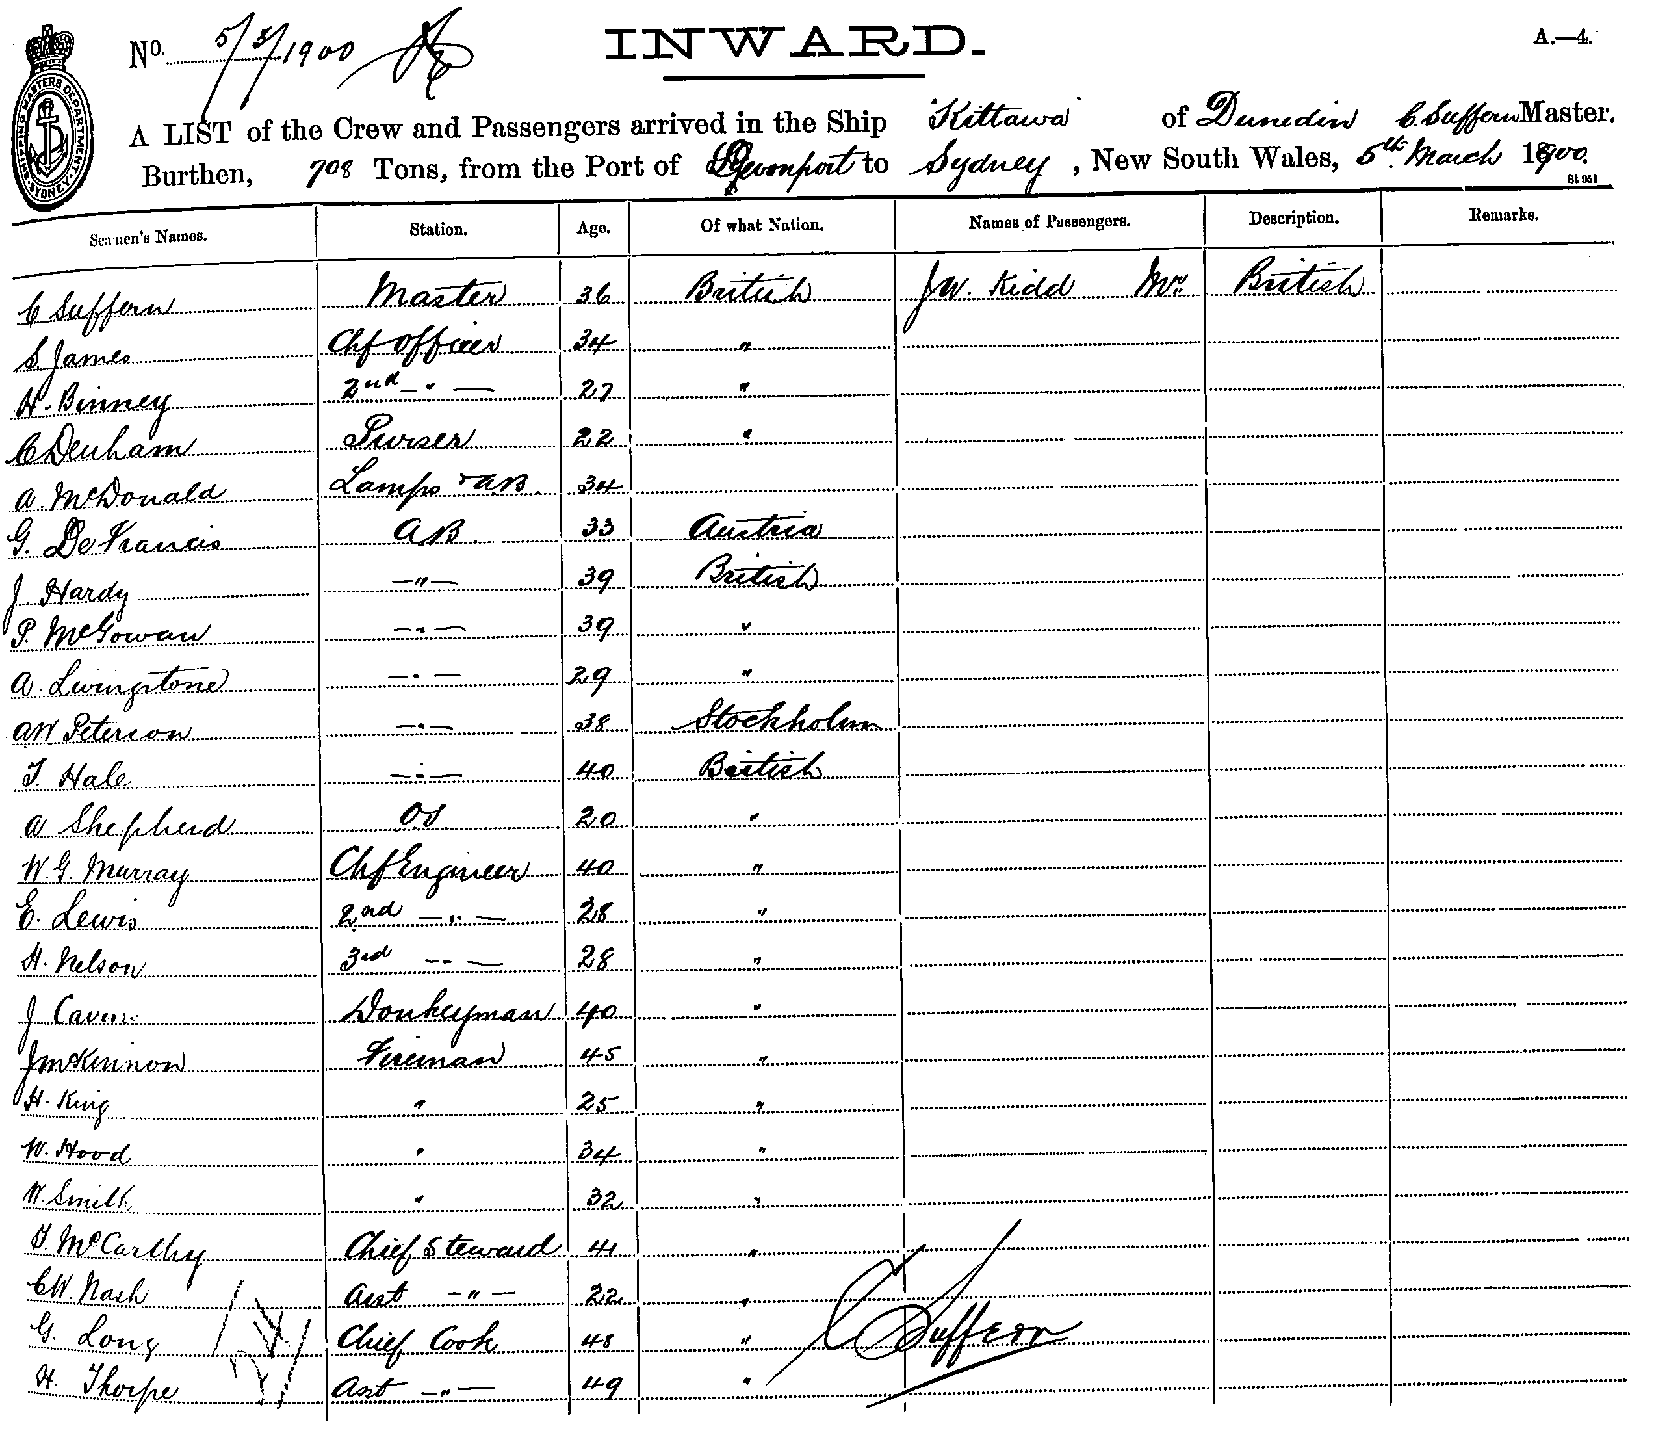 No. 5/3/1900 INWARD. A.—4.
SHIPPING MASTERS DEPARTMENT SYDNEY
A LIST of the Crew and Passengers arrived in the Ship "Kittawa" of Dunedin C. Suffern Master.
Burthen, 708 Tons, from the Port of Devonport to Sydney, New South Wales, 5th March 1900.
Seamen's Names. Station. Age. Of what Nation. Names of Passengers. Description. Remarks.
C Suffern Master 36 British J W. Kidd Mr. British
S James Chf Officer 34 "
H. Binney 2nd —"— 27 "
C Denham Purser 22 "
A McDonald Lamps & AB. 34
G. De Francis AB. 33 Austria
J Hardy —"— 39 British
P. McGowan —"— 39 "
A. Livingstone —"— 29 "
AW Peterson —"— 38 Stockholm
T. Hale —"— 40 British
A Shepherd OS 20 "
W. G. Murray Chf Engineer 40 "
E. Lewis 2nd —"— 28 "
H. Nelson 3rd —"— 28 "
J Donkeyman 40 "
J McKinnon Fireman 45 "
H. King " 25 "
W. Hood " 34 "
W. Smith " 32 "
T McCarthy Chief Steward 41 "
CW. Nash Asst —"— 22 "
G. Long Chief Cook 48 "
H. Thorpe Asst —"— 49 "
C Suffern
24